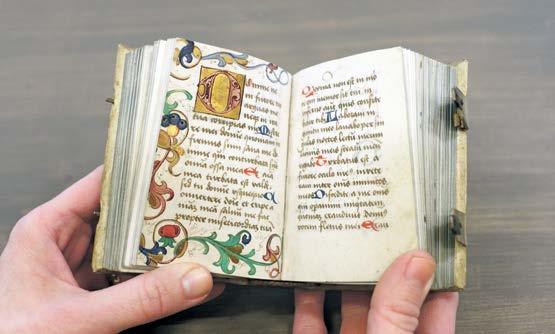 Domine ne
in furore tuo
arguas me
neq in ira
tua corripias me M
re mei domine quoniam in
firmus sum sana me do
mine quoniam conturbata sut
ossa mea Et a
mea turbata est valde
sed tu domine usquequo
vertere domine et eripe a
mea salvu me fac
propter misericordiam tua
Quoniam non est in mor
te qui memor sit tui in
inferno aut quis confite
bitur tibi Laboravi in
meo lavabo per sin
gulas noctes lectum meum
lacrimis meis stratum meum
Turbatus est a
furore oculus meus
inter omnes inimicos
meos Discedite a me omnes
qui operamini iniquitatem
exaudivit dominus
vocem fletus mei Exau